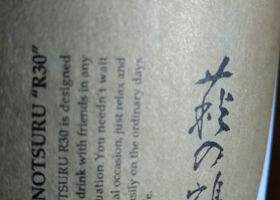 NOTSURU "R30"
TSURU R30 is designed
drink with friends in any
uation. You needn't wait
al occasion, just relax and
sily on the ordinary days
e.
萩の